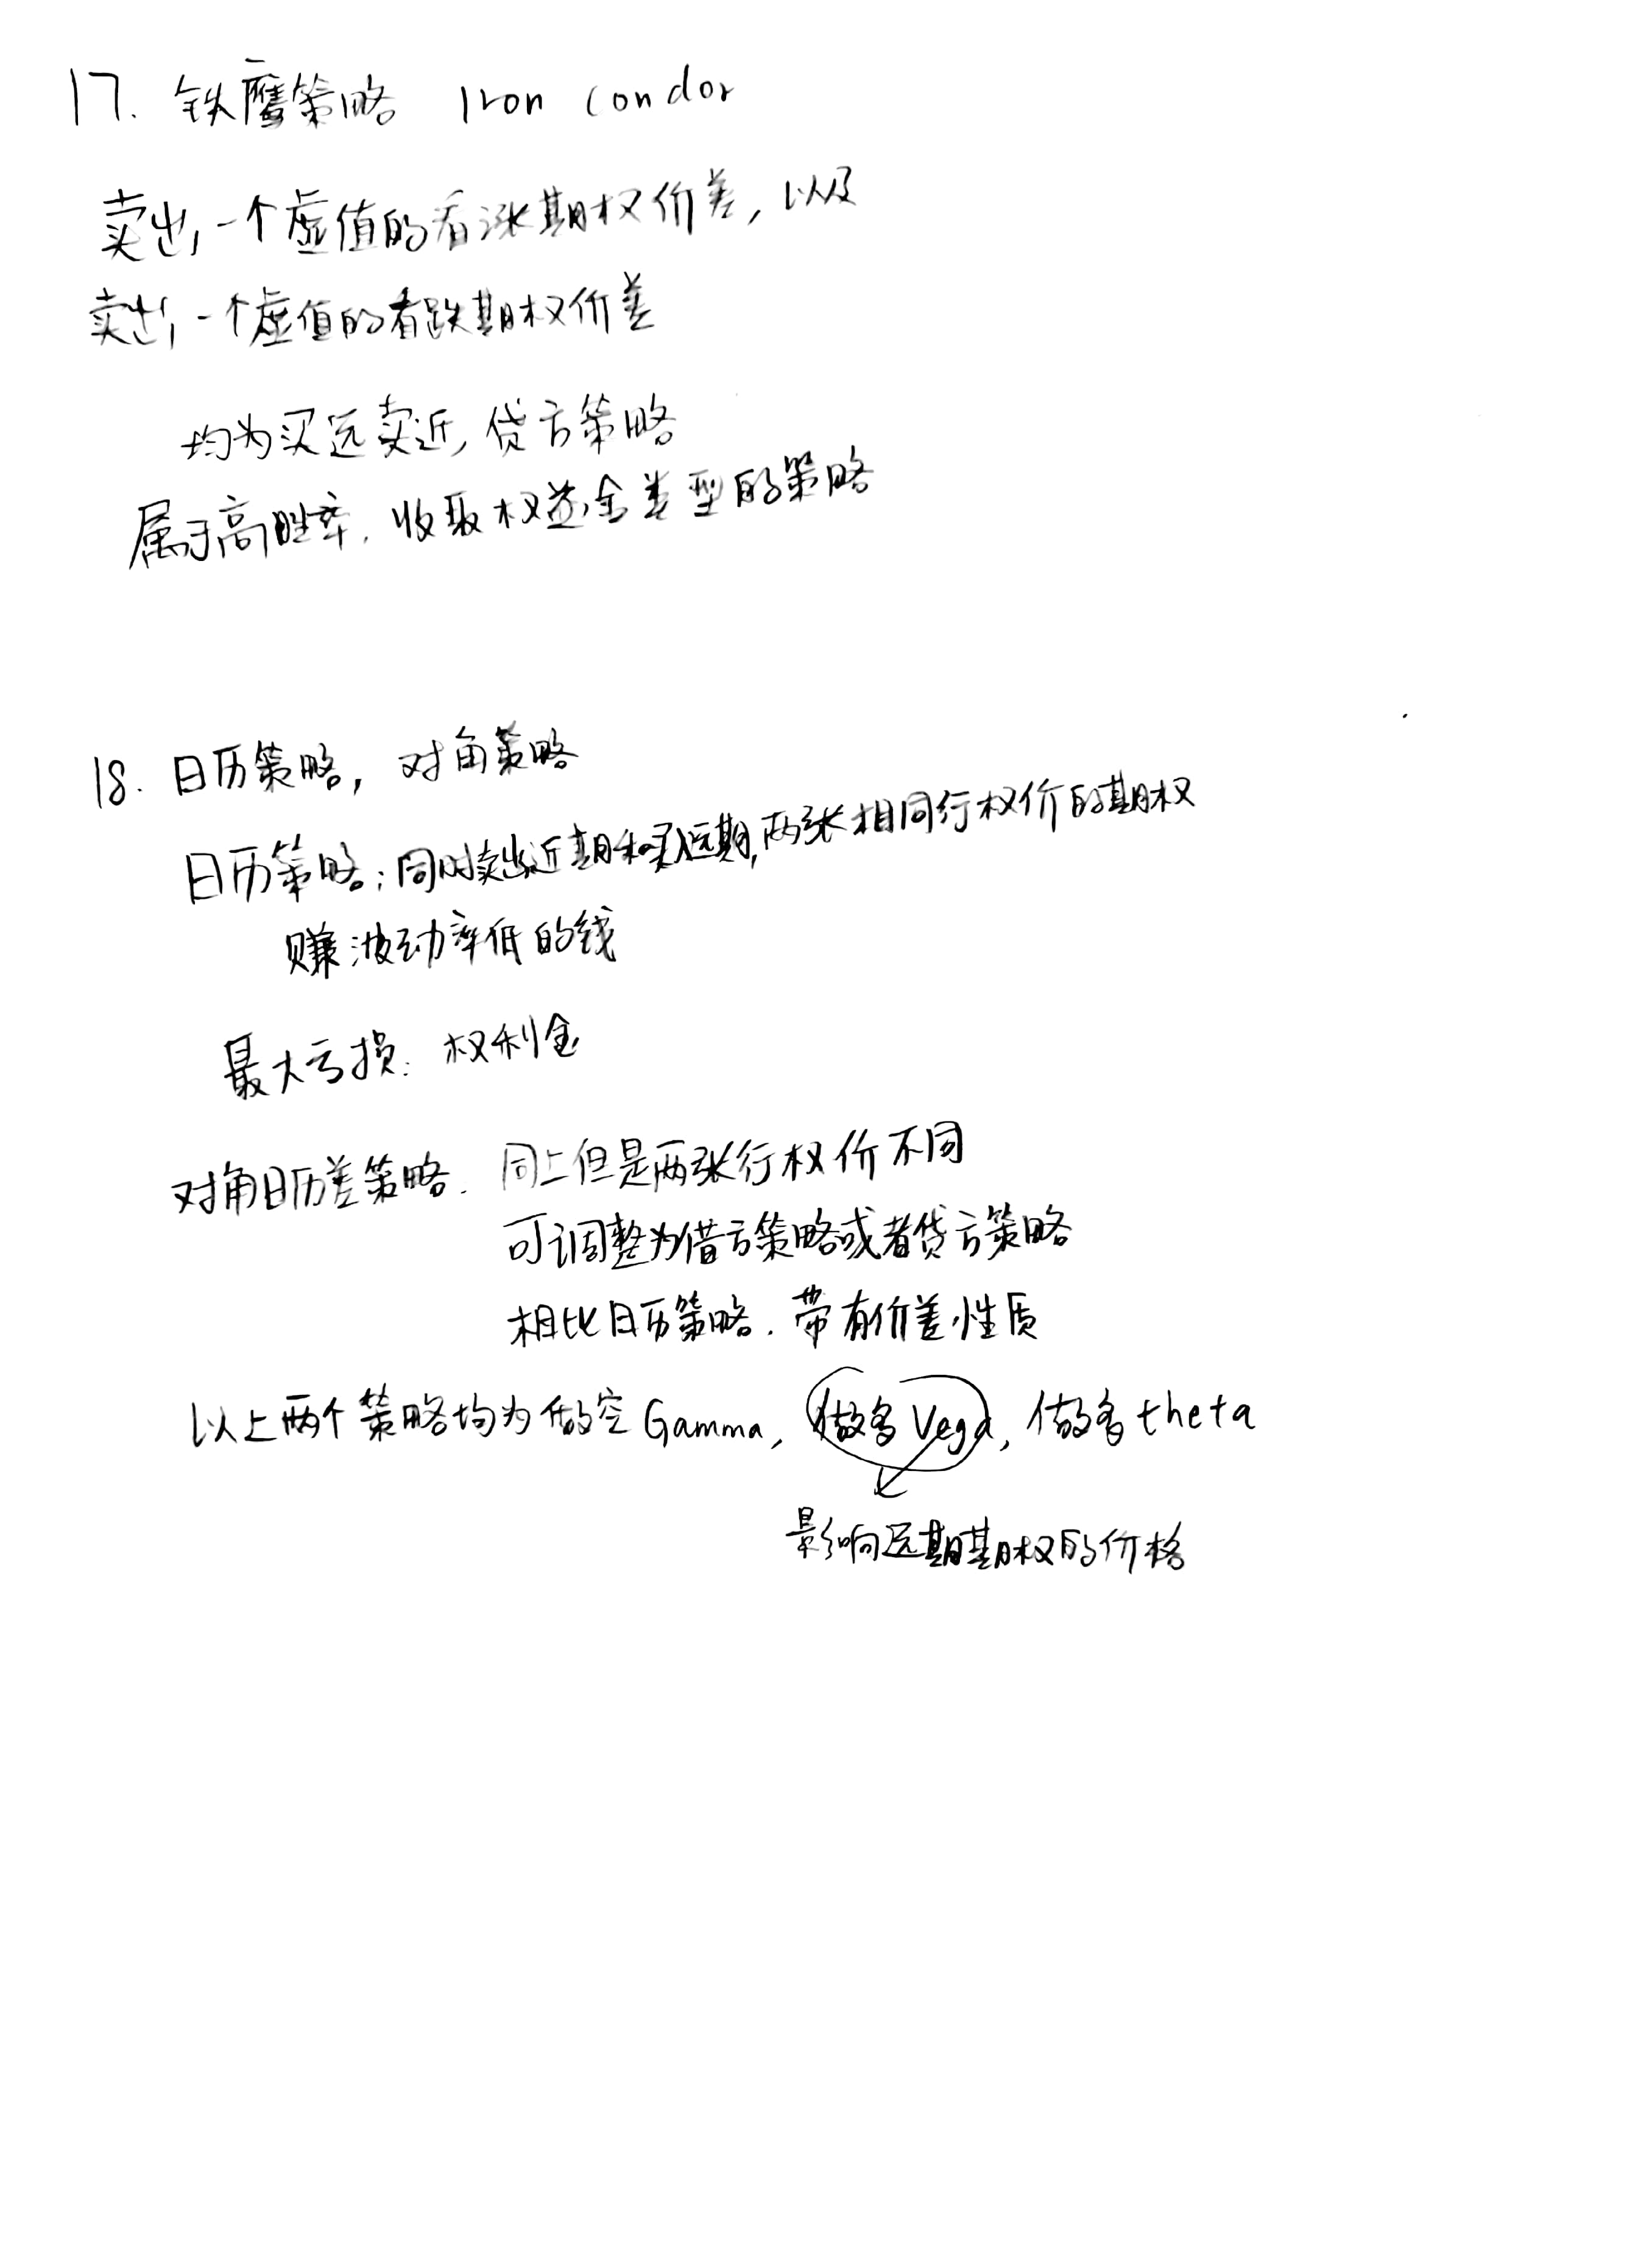 17. 铁鹰策略 Iron condor
卖出一个虚值的看涨期权价差, 以及
卖出一个虚值的看跌期权价差
均为买远卖近, 贷方策略
属于高胜率, 收取权益金类型的策略
18. 日历策略, 对角策略
日历策略: 同时卖出近期和买远期, 两张相同行权价的期权
赚波动率低的钱
最大亏损: 权利金
对角日历差策略. 同上但是两张行权价不同
可调整为借方策略或者贷方策略
相比日历策略. 带有价差性质
以上两个策略均为做空Gamma, 做多Vega, 做多theta
影响远期期权的价格